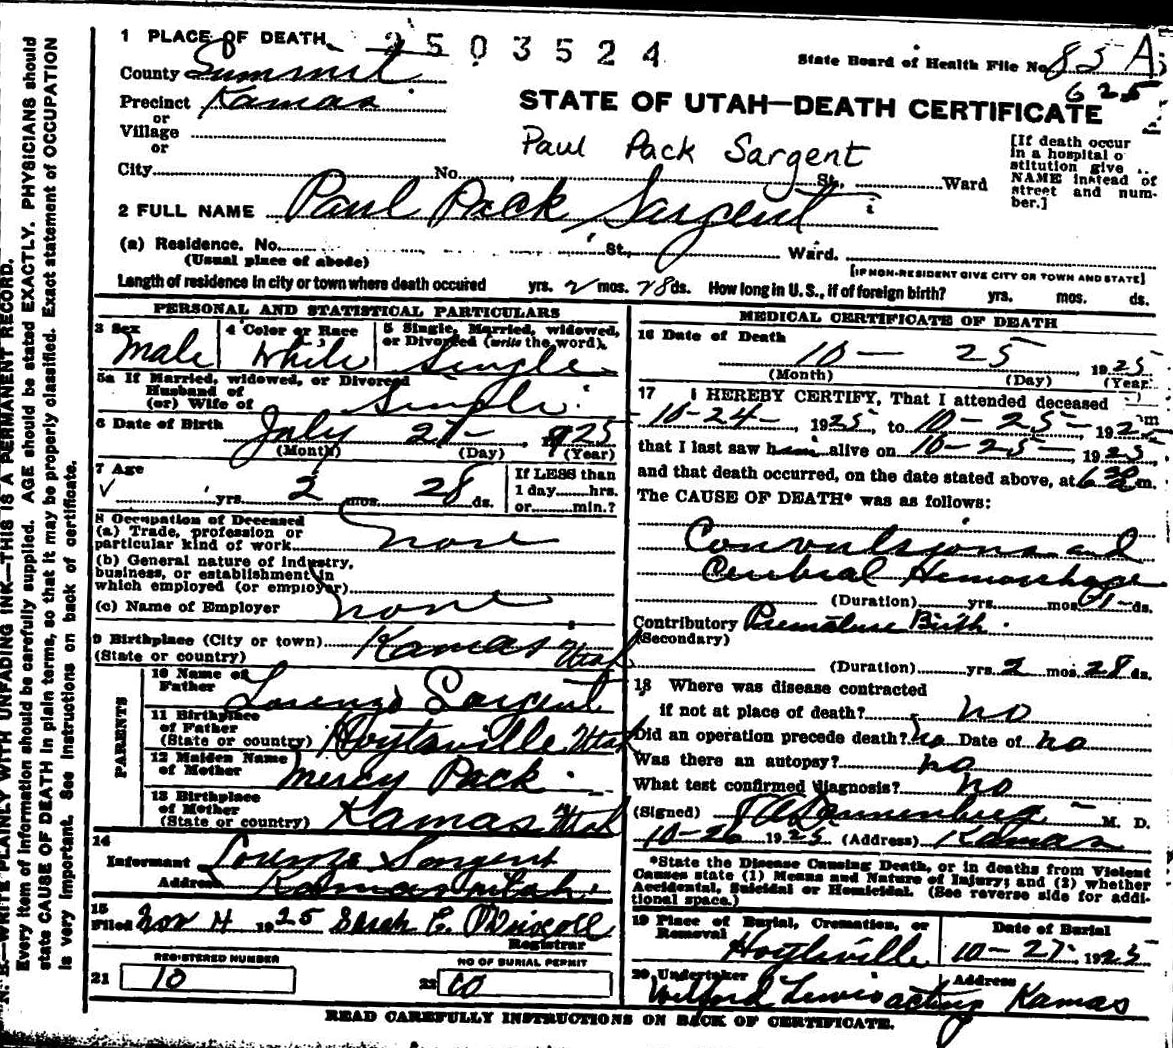 1 PLACE OF DEATH 2503524
State Board of Health File No 85 A
County Summit 625
Precinct Kamas
or
STATE OF UTAH—DEATH CERTIFICATE
Village
or
Paul Pack Sargent
[If death occur
in a hospital o
stitution give
NAME instead of
street and num-
ber.]
City No. St. Ward
2 FULL NAME Paul Pack Sargent
(a) Residence. No. St., Ward.
(Usual place of abode) [IF NON-RESIDENT GIVE CITY OR TOWN AND STATE]
Length of residence in city or town where death occured yrs. 2 mos. 28 ds. How long in U. S., if of foreign birth? yrs. mos. ds.
PERSONAL AND STATISTICAL PARTICULARS
3 Sex
Male
4 Color or Race
White
5 Single, Married, widowed,
or Divorced (write the word).
Single
5a If Married, widowed, or Divorced
Husband of
(or) Wife of Single
6 Date of Birth July 27 1925
(Month) (Day) (Year)
7 Age
yrs. 2 mos. 28 ds.
If LESS than
1 day hrs.
or min.?
8 Occupation of Deceased
(a) Trade, profession or
particular kind of work none
(b) General nature of industry,
business, or establishment in
which employed (or employer)
(c) Name of Employer none
9 Birthplace (City or town) Kamas Utah
(State or country)
PARENTS
10 Name of
Father Lorenzo Sargent
11 Birthplace
of Father
(State or country) Hoytsville Utah
12 Maiden Name
of Mother Mercy Pack
13 Birthplace
of Mother
(State or country) Kamas Utah
14
Informant Lorenzo Sargent
Address Kamas Utah
15
Filed Nov 4 1925 Sarah E. O'Driscoll
Registrar
REGISTERED NUMBER NO OF BURIAL PERMIT
21 10 22 10
MEDICAL CERTIFICATE OF DEATH
16 Date of Death
10— 25 1925
(Month) (Day) (Year)
17 I HEREBY CERTIFY, That I attended deceased
10-24- 1925, to 10-25- 1925
that I last saw him alive on 10-25-, 1925
and that death occurred, on the date stated above, at 6 30 m.
The CAUSE OF DEATH* was as follows:
Convulsions and
Cerebral Hemorrhage
(Duration) yrs. mos. 01 ds.
Contributory Premature Birth
(Secondary)
(Duration) yrs. 2 mos. 28 ds.
18 Where was disease contracted
if not at place of death? no
Did an operation precede death? no Date of no
Was there an autopsy? no
What test confirmed diagnosis? no
(Signed) M. D.
10-26 1925 (Address) Kamas
*State the Disease Causing Death, or in deaths from Violent
Causes state (1) Means and Nature of Injury; and (2) whether
Accidental, Suicidal or Homicidal. (See reverse side for addi-
tional space.)
19 Place of Burial, Cremation, or
Removal Hoytsville
Date of Burial
10-27, 1925
20 Undertaker Address
Wilford Lewis acting Kamas
READ CAREFULLY INSTRUCTIONS ON BACK OF CERTIFICATE.
N. B.—WRITE PLAINLY WITH UNFADING INK—THIS IS A PERMANENT RECORD.
Every item of information should be carefully supplied. AGE should be stated EXACTLY. PHYSICIANS should
state CAUSE OF DEATH in plain terms, so that it may be properly classified. Exact statement of OCCUPATION
is very important. See instructions on back of certificate.